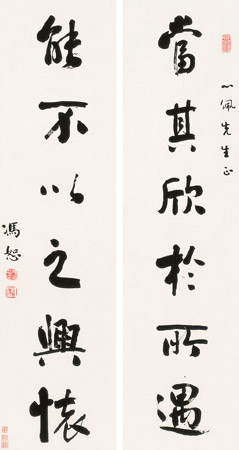 心佩先生正
當其欣於所遇
能不以之興懷
馮恕